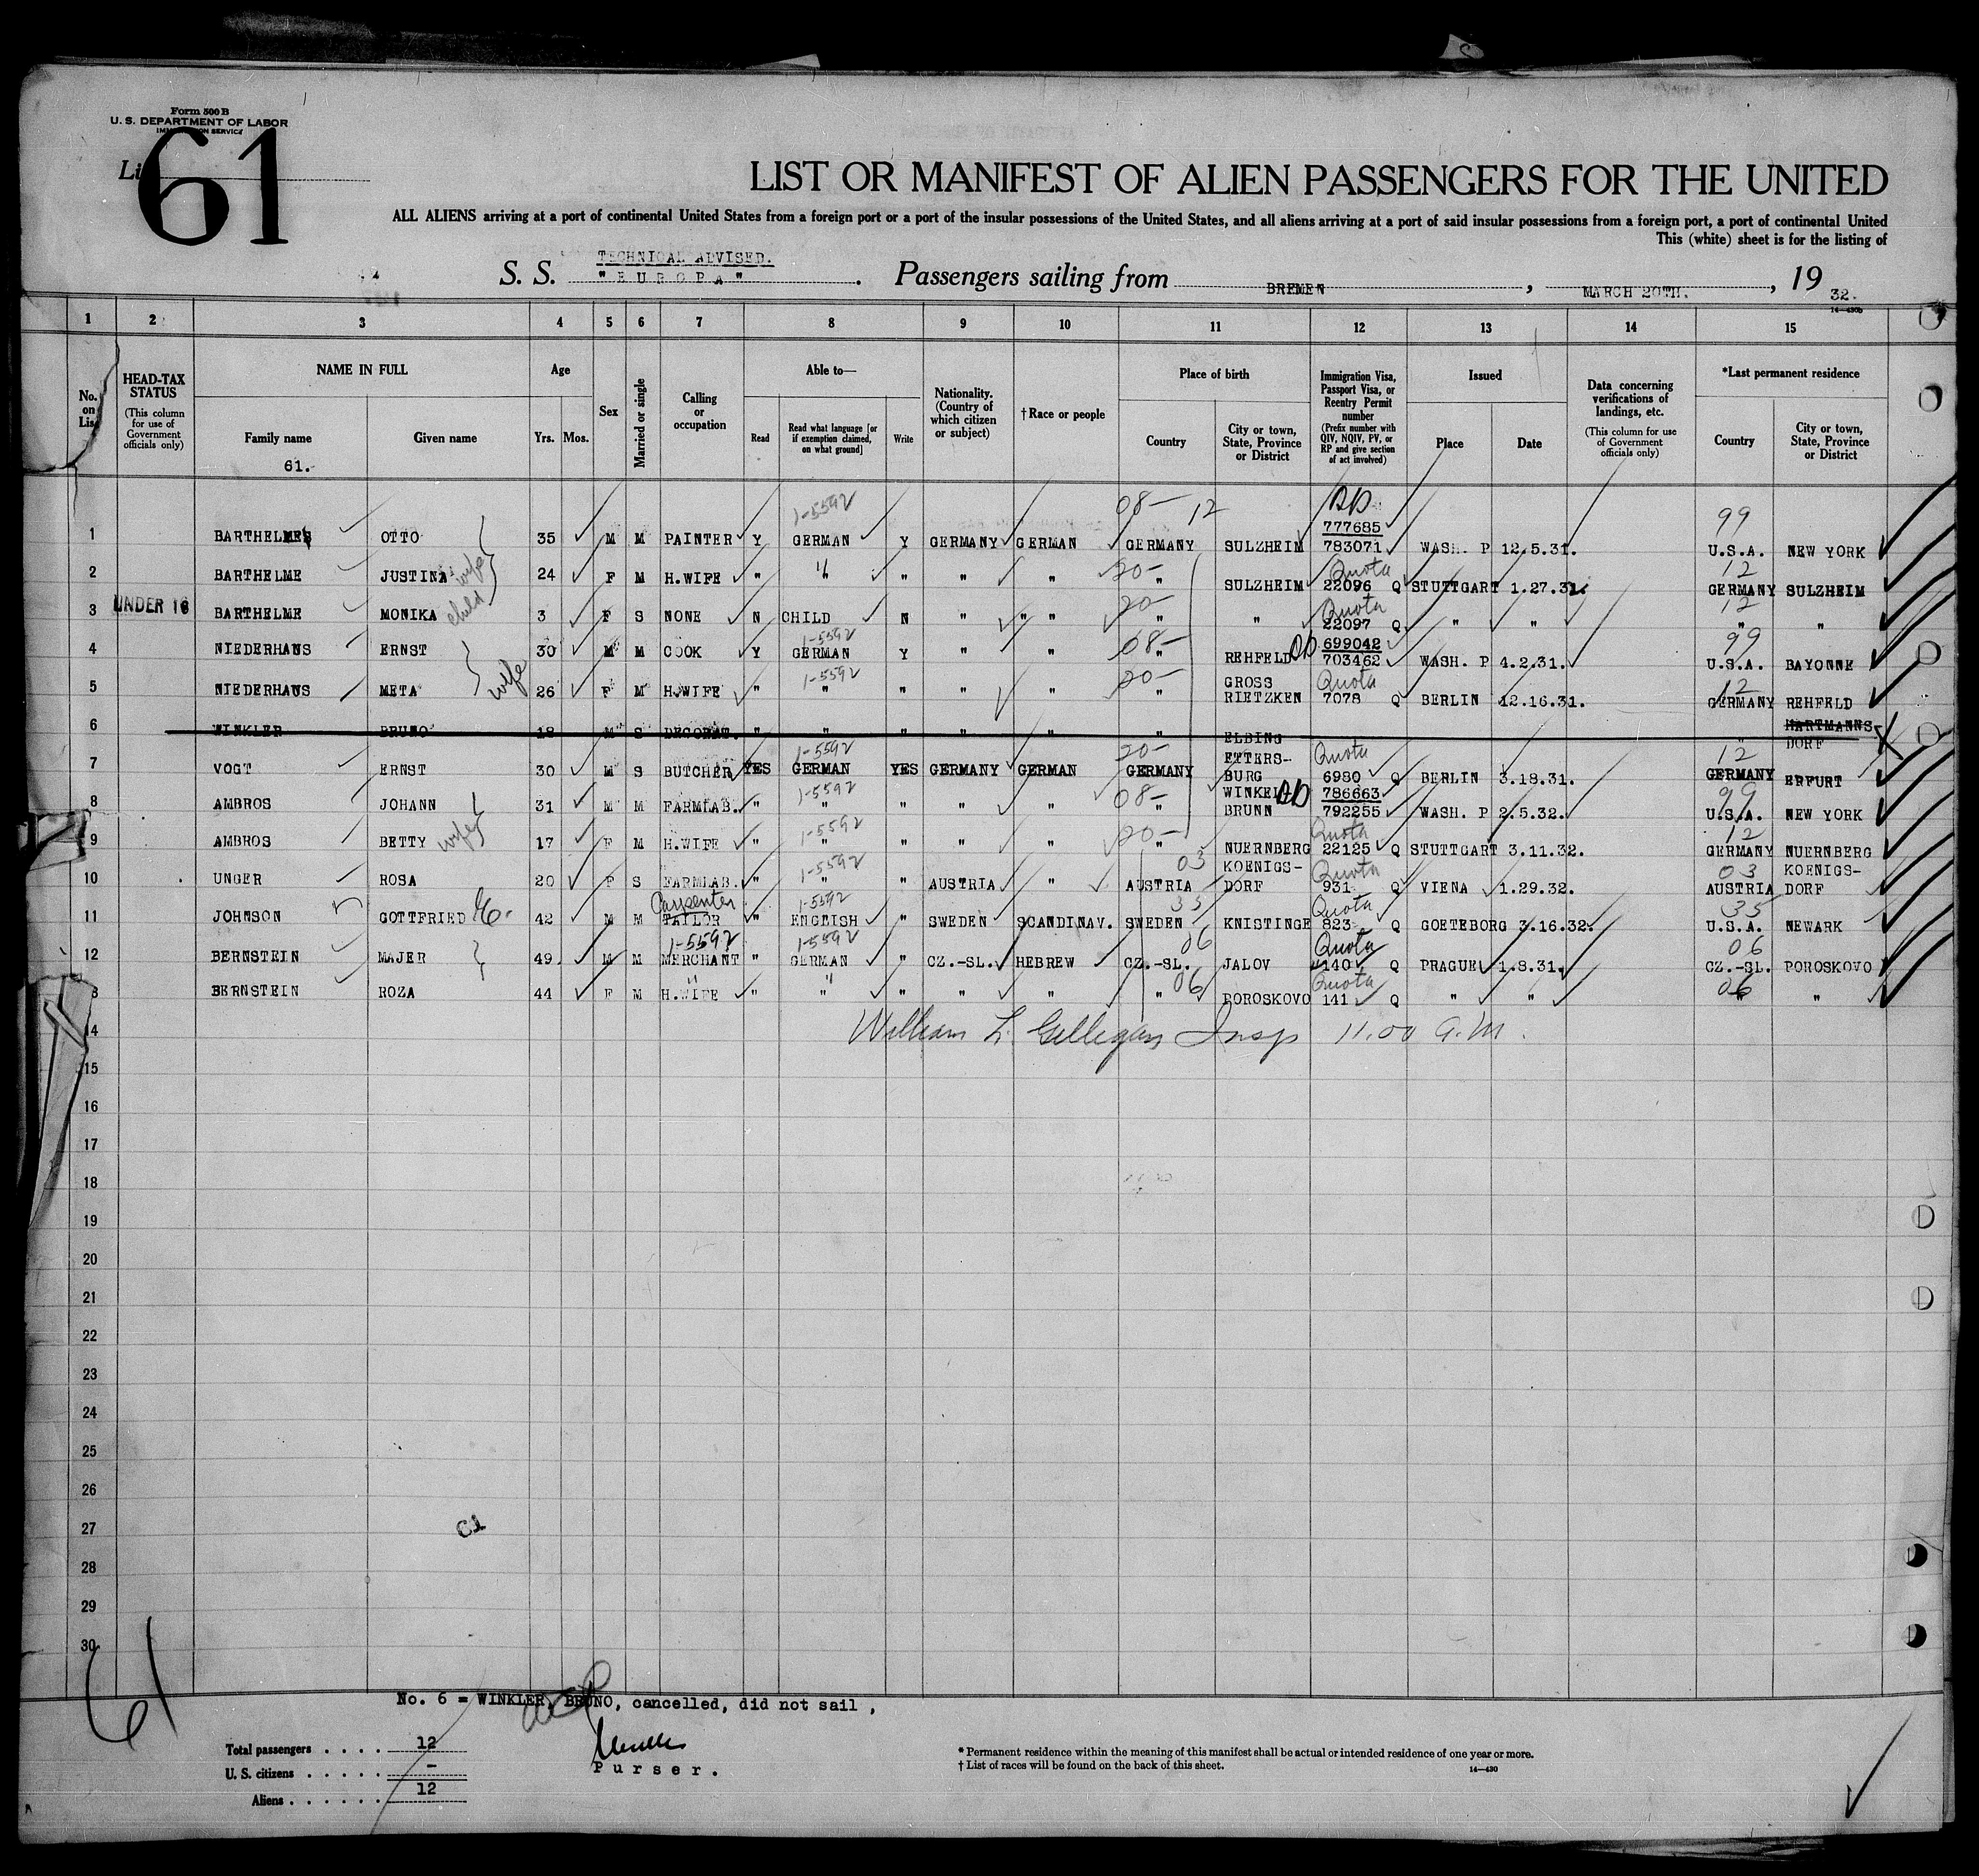 Form 500 B
U. S. DEPARTMENT OF LABOR
IMMIGRATION SERVICE
61
LIST OR MANIFEST OF ALIEN PASSENGERS FOR THE UNITED
ALL ALIENS arriving at a port of continental United States from a foreign port or a port of the insular possessions of the United States, and all aliens arriving at a port of said insular possessions from a foreign port, a port of continental United
This (white) sheet is for the listing of
TECHNICAL ADVISED.
S. S. "EUROPA". Passengers sailing from BREMEN, MARCH 20TH., 19 32.
14—430b
1 2 3 4 5 6 7 8 9 10 11 12 13 14 15
No. on List
HEAD-TAX STATUS (This column for use of Government officials only)
NAME IN FULL Family name Given name
61.
Age Yrs. Mos.
Sex
Married or single
Calling or occupation
Able to— Read Read what language [or if exemption claimed, on what ground] Write
Nationality. (Country of which citizen or subject)
†Race or people
Place of birth Country City or town, State, Province or District
Immigration Visa, Passport Visa, or Reentry Permit number (Prefix number with QIV, NQIV, PV, or RP and give section of act involved)
Issued Place Date
Data concerning verifications of landings, etc. (This column for use of Government officials only)
*Last permanent residence Country City or town, State, Province or District
1-5592 08- 12 777685 99
1 BARTHELMES OTTO 35 M M PAINTER Y GERMAN Y GERMANY GERMAN GERMANY SULZHEIM 783071 WASH. P 12.5.31. U.S.A. NEW YORK
wife 20- Quota 12
2 BARTHELME JUSTINA 24 F M H.WIFE " " " " " " SULZHEIM 22096 Q STUTTGART 1.27.32. GERMANY SULZHEIM
child 20- Quota 12
3 UNDER 16 BARTHELME MONIKA 3 F S NONE N CHILD N " " " " " 22097 Q " " " "
1-5592 08- 699042 99
4 NIEDERHANS ERNST 30 M M COOK Y GERMAN Y " " " REHFELD 703462 WASH. P 4.2.31. U.S.A. BAYONNE
wife 1-5592 20- Quota 12
5 NIEDERHANS META 26 F M H.WIFE " " " " " " GROSS RIETZKEN 7078 Q BERLIN 12.16.31. GERMANY REHFELD
6 WINKLER BRUNO 18 M S DECORAT. " " " " " " ELBING " HARTMANNS- DORF
1-5592 20- Quota 12
7 VOGT ERNST 30 M S BUTCHER YES GERMAN YES GERMANY GERMAN GERMANY ETTERS- BURG 6980 Q BERLIN 3.18.31. GERMANY ERFURT
1-5592 08- 786663 99
8 AMBROS JOHANN 31 M M FARMLAB. " " " " " " WINKEL BRUNN 792255 WASH. P 2.5.32. U.S.A. NEW YORK
wife 1-5592 20- Quota 12
9 AMBROS BETTY 17 F M H.WIFE " " " " " " NUERNBERG 22125 Q STUTTGART 3.11.32. GERMANY NUERNBERG
1-5592 03 Quota 03
10 UNGER ROSA 20 F S FARMLAB. " " " AUSTRIA " AUSTRIA KOENIGS- DORF 931 Q VIENA 1.29.32. AUSTRIA KOENIGS- DORF
Carpenter 1-5592 35 Quota 35
11 JOHNSON GOTTFRIED E. 42 M M TAYLOR " ENGLISH " SWEDEN SCANDINAV. SWEDEN KNISTINGE 823 Q GOETEBORG 3.16.32. U.S.A. NEWARK
1-5592 1-5592 06 Quota 06
12 BERNSTEIN MAJER 49 M M MERCHANT " GERMAN " CZ.-SL. HEBREW CZ.-SL. JALOV 140 Q PRAGUE 1.8.31. CZ.-SL. POROSKOVO
" " 06 Quota 06
13 BERNSTEIN ROZA 44 F M H.WIFE " " " " " " POROSKOVO 141 Q " " " "
14 William L. Gilligan Insp 11.00 A.M.
15
16
17
18
19
20
21
22
23
24
25
26
27
28
29
30
61
No. 6 = WINKLER, BRUNO, cancelled, did not sail,
Total passengers . . . . 12
U. S. citizens . . . . . -
Aliens . . . . . . 12
Purser.
* Permanent residence within the meaning of this manifest shall be actual or intended residence of one year or more.
† List of races will be found on the back of this sheet.
14—430